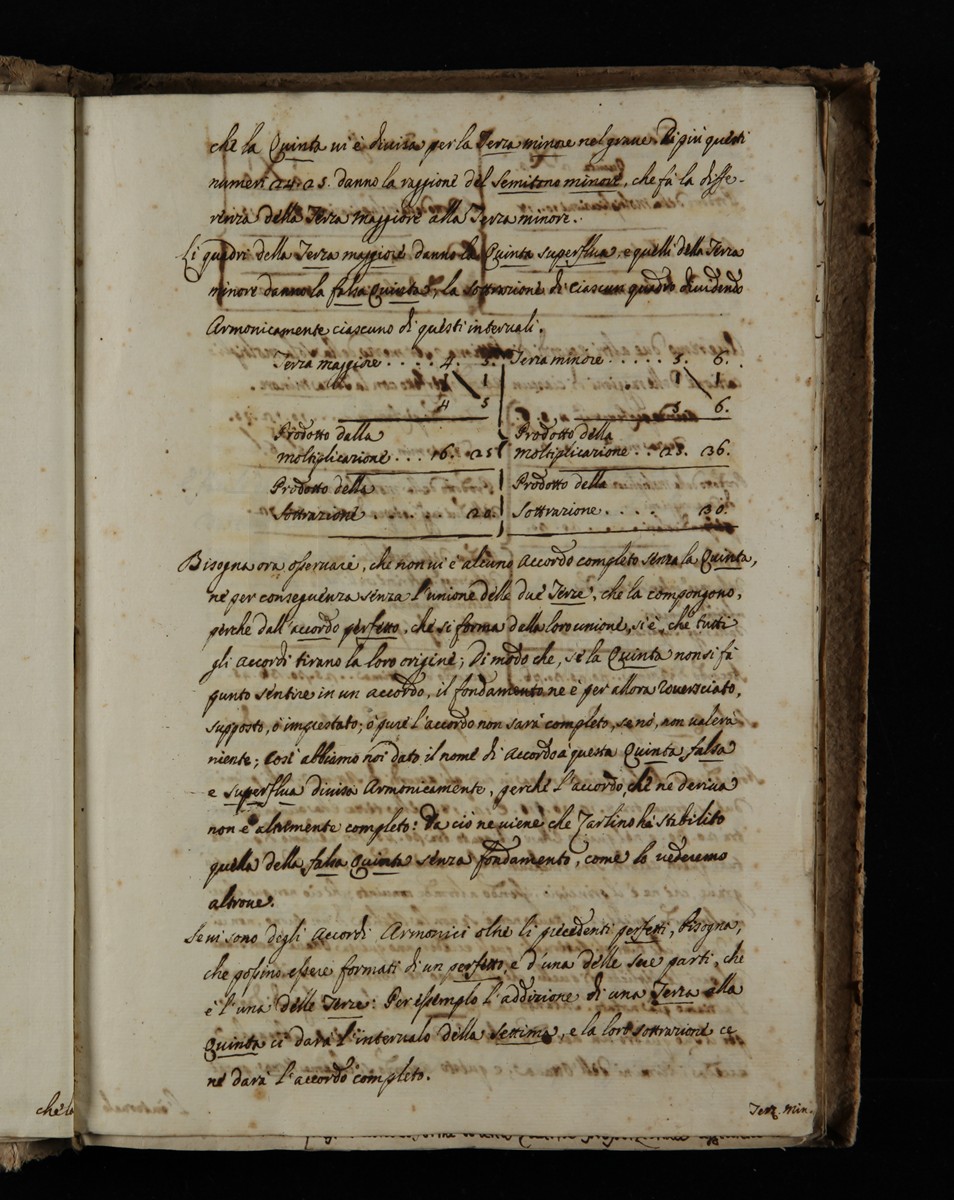 che la Quinta vi è divisa per la Terza minore nel grave. Di più questi
numeri 24. 25. danno la raggione del Semitono minore, che fà la diffe-
renza della Terza maggiore alla Terza minore.
Li quadri della Terza maggiore danno la Quinta superflua, e quelli della Terza
minore danno la falsa Quinta, la sottrazione di ciascun quadro dividendo
Armonicamente ciascuno di questi intervali.
Terza maggiore . . . . 4. 5. Terza minore . . . . . 5. 6.
1 1 1
4 5 5 6.
Prodotto dalla Prodotto della
moltiplicazione . . . 16. 25 moltiplicazione . . 25. 36.
Prodotto della Prodotto della
Sottrazione . . . . . . 20. Sottrazione . . . . 30.
Bisogna ora osservare, che non vi è alcuno accordo completo senza la Quinta,
nè per conseguenza senza l'unione delle due Terze, che la compongono,
perche dall'accordo perfetto, che si forma della loro unione, si è, che tutti
gli accordi tirano la loro origine; Di modo che, se la Quinta non si fà
punto sentire in un accordo, il fondamento ne è per allora roversciato,
supposto, ò imprestato; ò pure l'accordo non sarà completo, se nò, non valerà
niente; Così abbiamo noi dato il nome di accordo à questa Quinta falsa
e Superflua divisa Armonicamente, perche l'accordo, che ne deriva
non è altrimente completo: Da ciò ne viene che Zarlino hà stabilito
quella della falsa Quinta senza fondamento, come lo vederemo
altrove.
Se vi sono degli accordi Armonici oltre li precedenti perfetti, bisogna,
che possino essere formati di un perfetto, e d'una delle sue parti, che
è l'una delle Terze: Per essemplo l'addizione di una Terza alla
Quinta ci darà l'intervalo della Settima, e la loro sottrazione ce
ne darà l'accordo completo.
che la
Terz. Min.